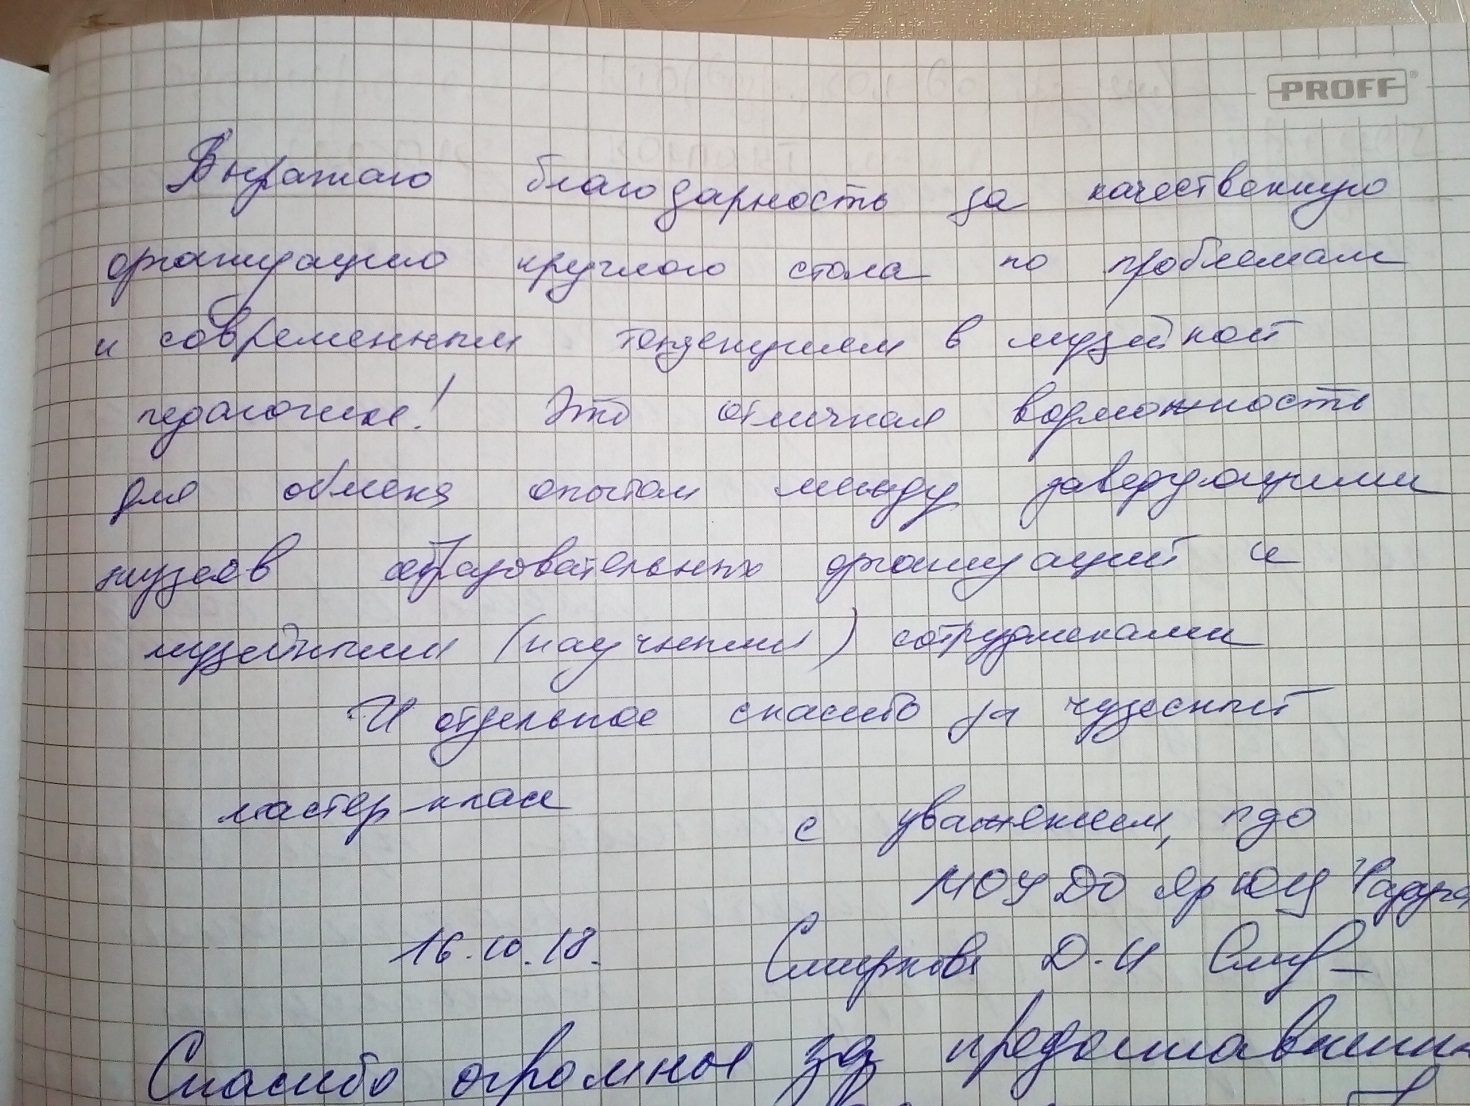 PROFF
Выражаю благодарность за качественную
организацию круглого стола по проблемам
и современным тенденциям в музейной
педагогике! Это отличная возможность
для обмена опытом между заведующими
музеев образовательных организаций и
музейными (научными) сотрудниками
И отдельное спасибо за чудесный
мастер-класс
с уважением, пдо
МОУ ДО ЯрЮЦ
16.10.18. Смирнова Д.И
Спасибо огромное за